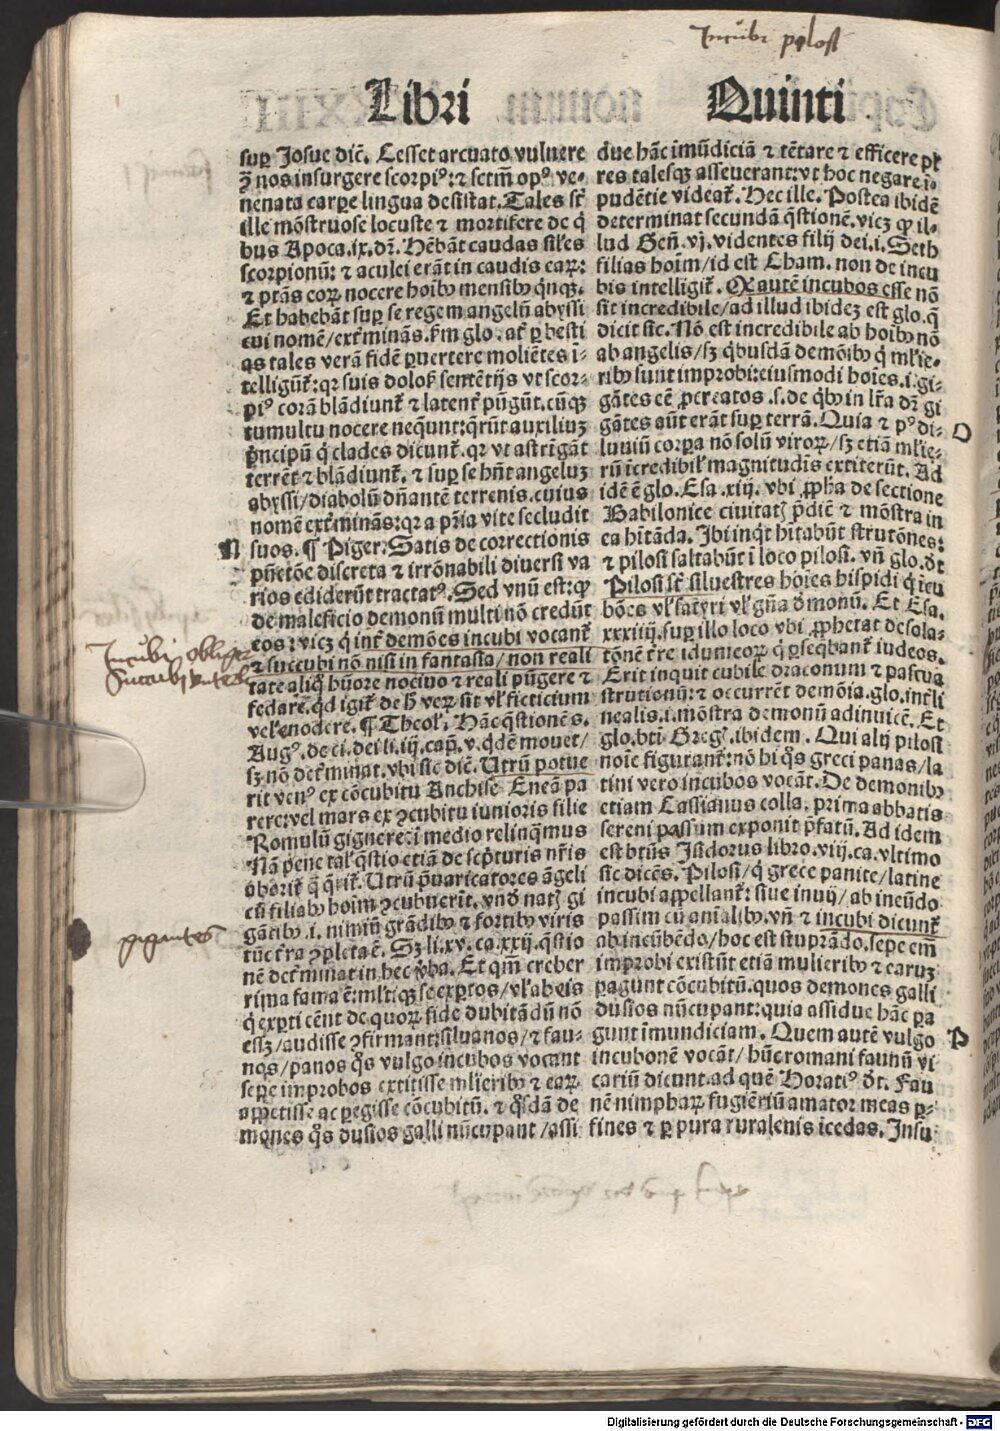 Incubi pilosi
Libri Quinti
sup Josue dic̄. Cesset arcuato vulnere
ꝯ nos insurgere scorpiꝰ: ⁊ sctm̄ opꝰ ve-
nenata carpe lingua desistat. Tales st̄
ille mōstruose locuste ⁊ mortifere de q̄
bus Apoca. ix. dr̄. Hēbāt caudas sil̄es
scorpionū: ⁊ aculei erāt in caudis earꝝ:
⁊ ptās eorꝝ nocere hoībꝰ mensibꝰ qn̄qꝫ.
Et habebāt sup se regem angelū abyssi
cui nomē/ext̄minās. Fm̄ glo. at̄ p besti
as tales verā fidē puertere moliētes i-
telligūt̄: qr suis dolos̄ sentētijs vt scor-
piꝰ corā blādiunt̄ ⁊ latent̄ pūgūt. cūqꝫ
tumultu nocere neqūnt: qrūt auxiliuꝫ
pncipū q̄ clades dicunt̄. qr vt astrīgāt
terrēt ⁊ blādiunt̄. ⁊ sup se hn̄t angeluꝫ
abyssi/diabolū dn̄antē terrenis. cuius
nomē ext̄minās: qr a p̄ria vite secludit
N
suos. ¶ Piger. Satis de correctionis
pn̄etōe discreta ⁊ irrōnabili diuersi va
rios ediderūt tractatꝰ. Sed vnū est: qꝫ
de maleficio demonū multi nō credūt
eos: vicꝫ q̄ int̄ demōes incubi vocant̄
Incubi
Succubi
⁊ succubi nō nisi in fantasia/non reali
tate aliq̄ hūore nociuo ⁊ reali pūgere ⁊
fedare. qd igit̄ de h̄ verꝝ sit vl̄ ficticium
vel̄ enodere. ¶ Theol̄. Hāc qstionē s.
Augꝰ. de ci. dei li. iij. cap̄. v. qdē mouet/
sꝫ nō det̄minat. vbi sic dic̄. Utrū potue
rit venꝰ ex cōcubitu Anchise Eneā pa
rere: vel mars ex ꝯcubitu iunioris filie
Romulū gignere: i medio relinqmus
Nā pene tal̄ qstio etiā de scpturis nr̄is
aborit̄ q̄ qrit̄. Utrū puaricatores āgeli
cū filiabꝰ hoīm ꝯcubuerīt. vnd̄ natꝭ gi
gigantes
gātibꝰ. i. nimiū grādibꝰ ⁊ fortibꝰ viris
tūc t̄ra ꝯpleta ē. Sꝫ li. xv. ca. xxij. qstio
nē det̄minat in hec v̄ba. Et qm̄ creber
rima fama ē: ml̄tiqꝫ se exptos/vl̄ ab eis
q̄ expti cēnt de quorꝝ fide dubitādū nō
essꝫ/audisse ꝯfirmant: siluanos/⁊ fau-
nos/panos qs̄ vulgo incubos vocant
sepe improbos extitisse ml̄ieribꝰ ⁊ earꝝ
appetisse ac pegisse cōcubitū. ⁊ qs̄dā de
mones qs̄ dusios galli nūcupant/assi
due hāc imūdiciā ⁊ tētare ⁊ efficere pl̄
res talesqꝫ asseuerant: vt hoc negare i-
pudētie videat̄. Hec ille. Postea ibidē
determinat secundā qstionē. vicꝫ qꝫ il-
lud Gen̄. vj. videntes filij dei. i. Seth
filias hoīm/id est Cham. non de incu
bis intelligit̄. Qꝫ autē incubos esse nō
sit incredibile/ad illud ibideꝫ est glo. q̄
dicit sic. Nō est incredibile ab hoībꝰ nō
ab angelis/sꝫ qbusdā demōibꝰ q̄ ml̄ie-
ribꝰ sunt improbi: eiusmodi hoīes. i. gi-
gātes cē pcreatos. s. de qbꝰ in lr̄a dr̄ gi
gātes aūt erāt sup terrā. Quia ⁊ pꝰ di-
O
luuiū corpa nō solū virorꝝ/sꝫ etiā ml̄ie-
rū icredibil̄ magnitudīs extiterūt. Ad
idē ē glo. Esa. xiij. vbi ppha de sectione
Babilonice ciuitatꝭ pdic̄ ⁊ mōstra in
ea hītāda. Ibi inqt hītabūt strutōnes:
⁊ pilosi saltabūt i loco pilosi. vn̄ glo. dt
Pilosi st̄ siluestres hoīes hispidi q̄ icu
bōes vl̄ satyri vl̄ gn̄a dmonū. Et Esa.
xxxiiij. sup illo loco vbi pphetat desola-
tōnē t̄re idumeorꝝ q̄ pseqbant̄ iudeos.
Erit inquit cubile draconum ⁊ pascua
strutionū: ⁊ occurrēt demōia. glo. int̄li
nealis. i. mōstra demonū adinuicē. Et
glo. bti Gregꝰ. ibidem. Qui alij pilosi
noīe figurant̄: nō hi qs̄ greci panas/la
tini vero incubos vocāt. De demonibꝰ
etiam Cassianus colla. prima abbatis
sereni passum exponit pfatū. Ad idem
est btūs Isidorus libro. viij. ca. vltimo
sic dicēs. Pilosi/q̄ grece panite/latine
incubi appellant̄: siue inuij/ab ineūdo
passim cū aīalibꝰ. vn̄ ⁊ incubi dicunt̄
ab incūbēdo/hoc est stuprādo. sepe em̄
improbi existūt etiā mulieribꝰ ⁊ earuꝫ
pagunt cōcubitū. quos demones galli
dusios nūcupant: quia assidue hāc pa
gunt īmundiciam. Quem autē vulgo
P
incubonē vocāt/hūc romani faunū vi
cariū dicunt. ad quē Horatiꝰ dt̄. Fau
nē nimpharꝝ fugiētiū amator meas p-
fines ⁊ p pura ruralenis icedas. Insu
Digitalisierung gefördert durch die Deutsche Forschungsgemeinschaft - DFG